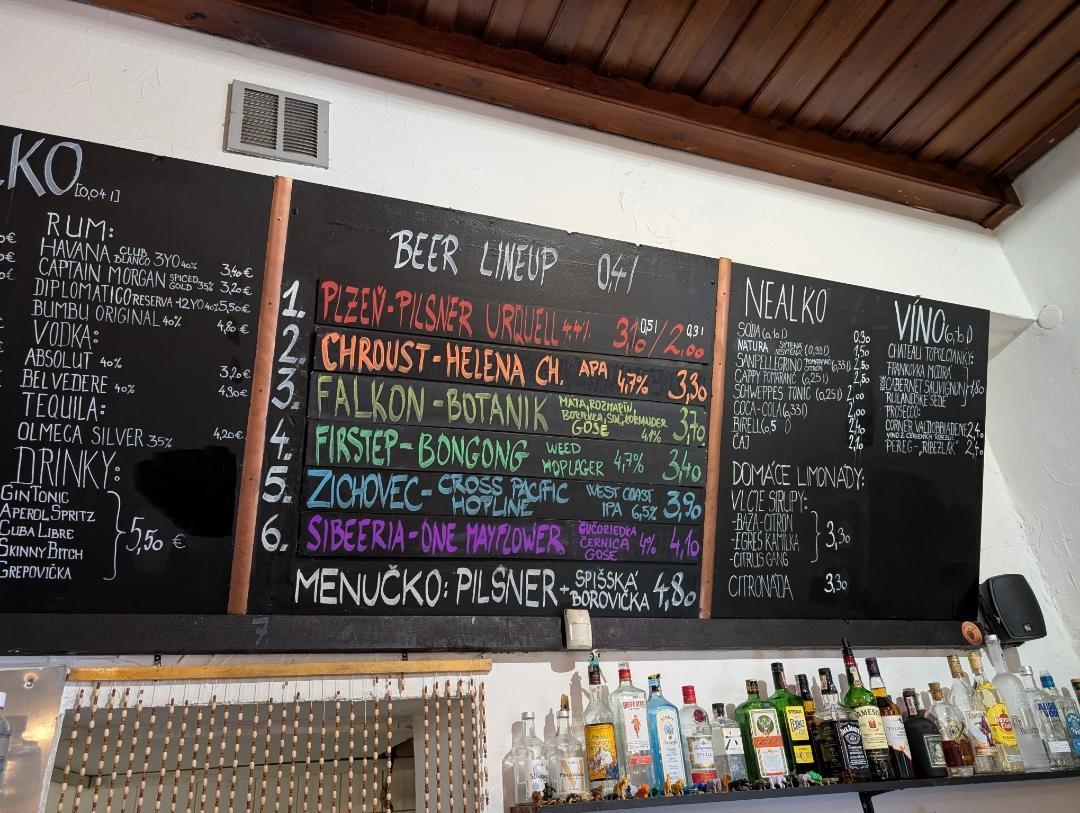 KO [0,04 l]
RUM:
HAVANA CLUB BLANCO 3YO 40% 3,40€
CAPTAIN MORGAN SPICED GOLD 35% 3,20€
DIPLOMATICO RESERVA -12YO 40% 5,50€
BUMBU ORIGINAL 40% 4,80€
VODKA:
ABSOLUT 40% 3,20€
BELVEDERE 40% 4,90€
TEQUILA:
OLMECA SILVER 35% 4,20€
DRINKY:
GINTONIC
APEROL SPRITZ
CUBA LIBRE
SKINNY BITCH
GREPOVIČKA
5,50 €
BEER LINEUP 0,4l
1. PLZEŇ-PILSNER URQUELL 4,4% 3,10 0,5l / 2,00 0,3l
2. CHROUST-HELENA CH. APA 4,7% 3,30
3. FALKON-BOTANIK MÄTA, ROZMARÍN, BORIEVKA, SOĽ, KORIANDER GOSE 4,1% 3,70
4. FIRSTEP-BONGONG WEED HOPLAGER 4,7% 3,40
5. ZICHOVEC-CROSS PACIFIC HOPLINE WEST COAST IPA 6,5% 3,90
6. SIBEERIA-ONE MAYFLOWER ČUČORIEDKA ČERNICA GOSE 4% 4,10
MENUČKO: PILSNER + SPIŠSKÁ BOROVIČKA 4,80
NEALKO
SODA (0,1 l) 0,30
NATURA SÝTENÁ NESÝTENÁ (0,33 l) 1,50
SANPELLEGRINO CITRON (0,33 l)
CAPPY POMARANČ (0,25 l)
SCHWEPPES TONIC (0,25 l)
COCA-COLA (0,33 l) 2,00
BIRELL 0,5
ČAJ 2,10
DOMÁCE LIMONÁDY:
VLČIE SIRUPY:
-BAZA-CITRON
-EGREŠ KAMILKA
-CITRUS GANG
3,90
CITRONÁDA 3,30
VÍNO (0,1 l)
CHATEAU TOPOĽČIANKY:
FRANKOVKA MODRÁ
CABERNET SAUVIGNON
RULANDSKÉ ŠEDÉ
1,80
PROSECO:
CORNER VALDOBBIADENE 2,40
VÍNO Z ČERVENÝCH RÍBEZLÍ:
PEREG-„RIBEZLÁK“ 2,40
BEEFEATER
JAMESON
JACK DANIEL'S